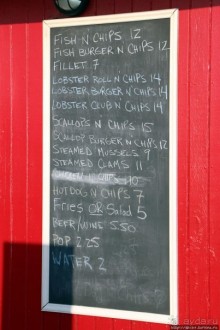 FISH N' CHIPS 12
FISH BURGER N' CHIPS 12
FILLET 7
LOBSTER ROLL N' CHIPS 14
LOBSTER BURGER N' CHIPS 14
LOBSTER CLUB N' CHIPS 14
SCALLOPS N' CHIPS 15
SCALLOP BURGER N' CHIPS 12
STEAMED MUSSELS 9
STEAMED CLAMS 11
N' CHIPS 10
HOT DOG N' CHIPS 7
Fries OR Salad 5
BEER/WINE 5.50
POP 2.25
WATER 2